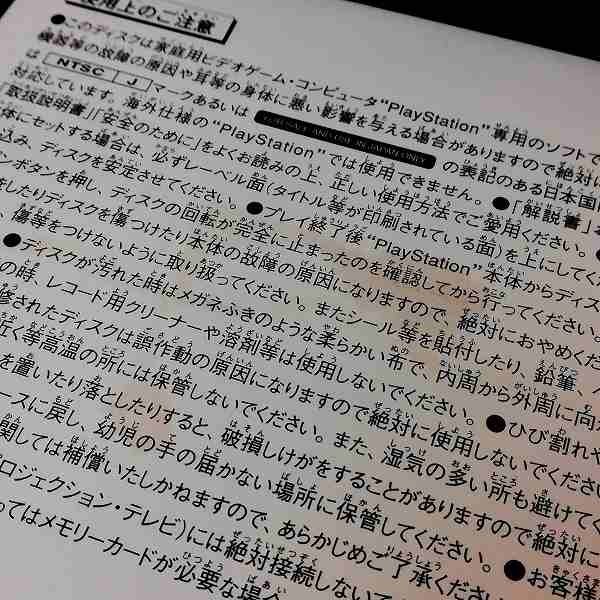 使用上のご注意
●このディスクは家庭用ビデオゲーム・コンピュータ“PlayStation”専用のソフトで
機器等の故障の原因や耳等の身体に悪い影響を与える場合がありますので絶対に
は NTSC J マークあるいは FOR SALE AND USE IN JAPAN ONLY の表記のある日本国
対応しています。海外仕様の“PlayStation”では使用できません。●「解説書」
「取扱説明書」「安全のために」をよくお読みの上、正しい使用方法でご愛用ください。
体にセットする場合は、必ずレーベル面(タイトル等が印刷されている面)を上にしてく
込み、ディスクを安定させてください。●プレイ終了後“PlayStation”本体からディス
ンボタンを押し、ディスクの回転が完全に止まったのを確認してから行ってください。
をしたりディスクを傷つけたり本体の故障の原因になりますので、絶対におやめくだ
、傷等をつけないように取り扱ってください。またシール等を貼付したり、鉛筆、
●ディスクが汚れた時はメガネふきのような柔らかい布で、内周から外周に向
の時、レコード用クリーナーや溶剤等は使用しないでください。●ひび割れや
修されたディスクは誤作動の原因になりますので絶対に使用しないでくださ
近く等高温の所には保管しないでください。また、湿気の多い所も避けてく
を置いたり落としたりすると、破損しけがをすることがありますので絶対に
ースに戻し、幼児の手の届かない場所に保管してください。●お客様
関しては補償いたしかねますので、あらかじめご了承くださ
プロジェクション・テレビ)には絶対接続しない
ってはメモリーカードが必要な場合